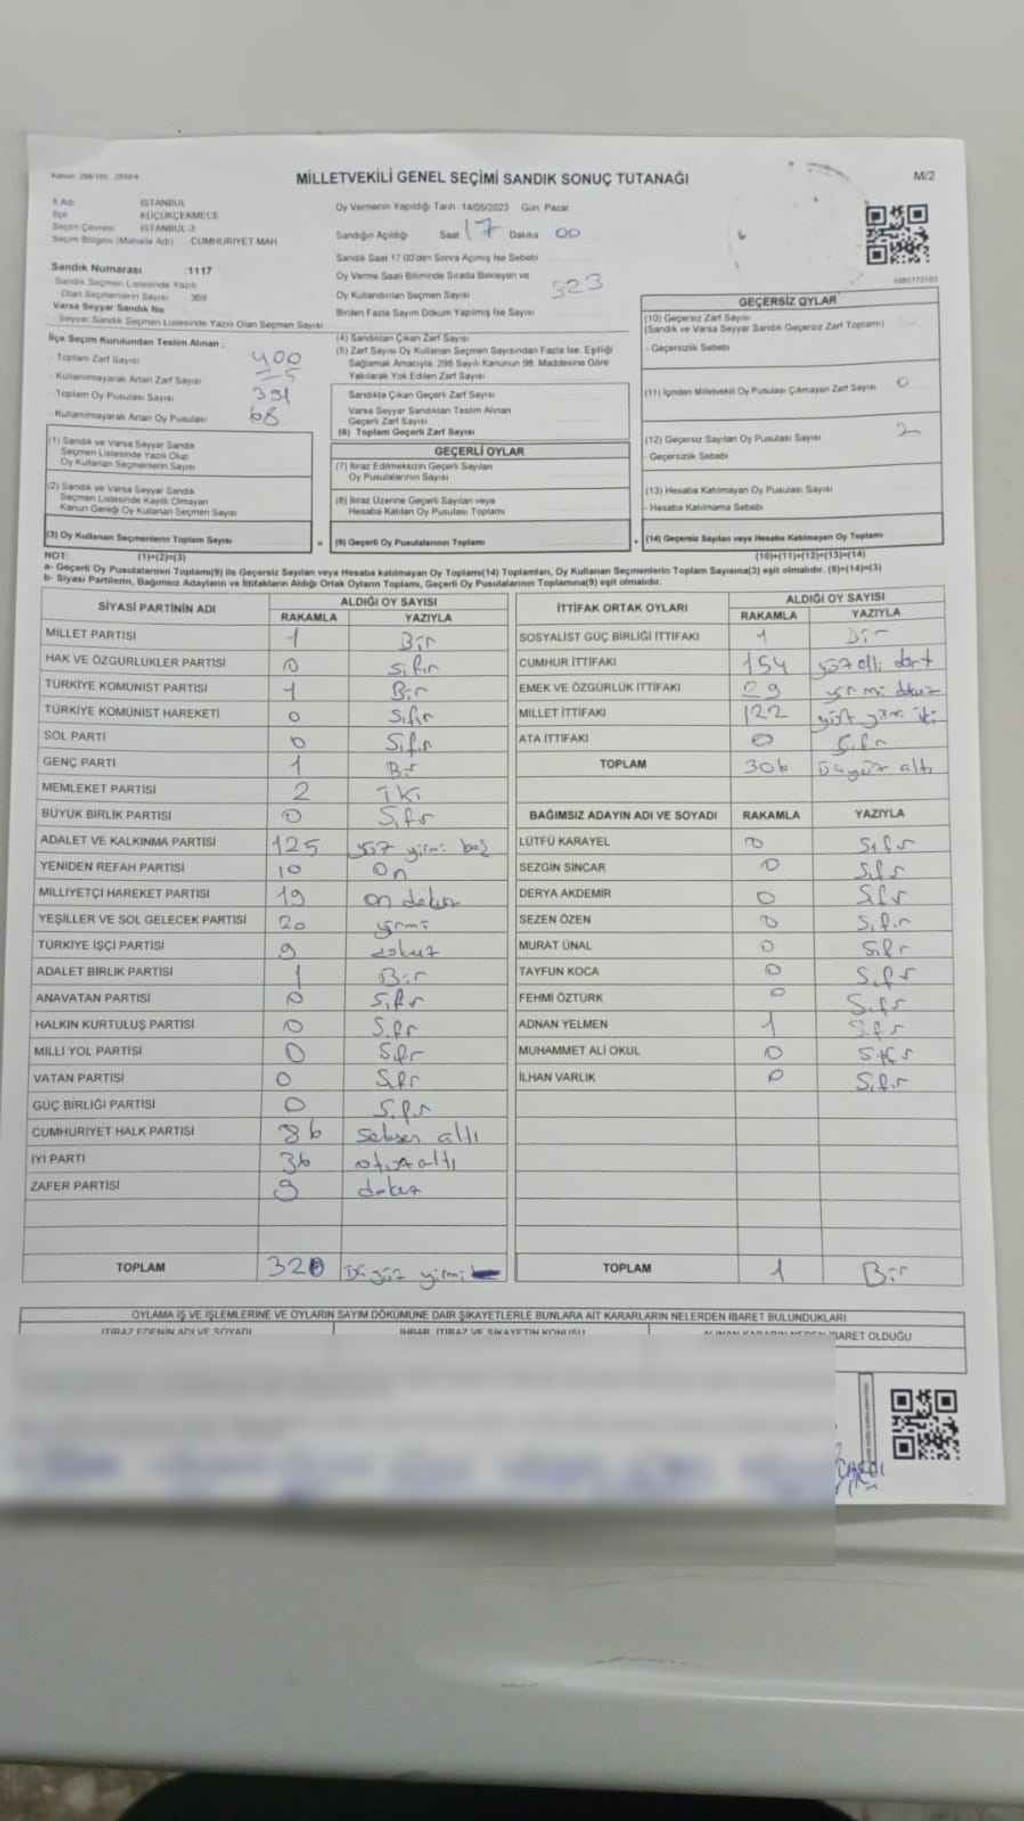 MİLLETVEKİLİ GENEL SEÇİMİ SANDIK SONUÇ TUTANAĞI
M/2
İSTANBUL
KÜÇÜKÇEKMECE
İSTANBUL-3
Seçim Bölgesi (Mahalle Adı) CUMHURİYET MAH
Sandık Numarası :1117
Sandık Seçmen Listesinde Yazılı
Olan Seçmenlerin Sayısı
Varsa Seyyar Sandık No
Seyyar Sandık Seçmen Listesinde Yazılı Olan Seçmen Sayısı
Oy Vermenin Yapıldığı Tarih :14/05/2023 Gün: Pazar
Sandığın Açıldığı Saat 17 Dakika 00
Sandık Saat 17:00'den Sonra Açılmış İse Sebebi
Oy Verme Saati Bitiminde Sırada Bekleyen ve
Oy Kullandırılan Seçmen Sayısı 323
Birden Fazla Sayım Döküm Yapılmış İse Sayısı
İlçe Seçim Kurulundan Teslim Alınan :
- Toplam Zarf Sayısı 400
- Kullanılmayarak Artan Zarf Sayısı
- Toplam Oy Pusulası Sayısı 391
- Kullanılmayarak Artan Oy Pusulası 68
(1) Sandık ve Varsa Seyyar Sandık
Seçmen Listesinde Yazılı Olup
Oy Kullanan Seçmenlerin Sayısı
(2) Sandık ve Varsa Seyyar Sandık
Seçmen Listesinde Kayıtlı Olmayan
Kanun Gereği Oy Kullanan Seçmen Sayısı
(3) Oy Kullanan Seçmenlerin Toplam Sayısı
(4) Sandıktan Çıkan Zarf Sayısı
(5) Zarf Sayısı Oy Kullanan Seçmen Sayısından Fazla İse, Eşitliği
Sağlamak Amacıyla, 298 Sayılı Kanunun 98. Maddesine Göre
Yakılarak Yok Edilen Zarf Sayısı
Sandıkta Çıkan Geçerli Zarf Sayısı
Varsa Seyyar Sandıktan Teslim Alınan
Geçerli Zarf Sayısı
(6) Toplam Geçerli Zarf Sayısı
GEÇERLİ OYLAR
(7) İtiraz Edilmeksizin Geçerli Sayılan
Oy Pusulalarının Sayısı
(8) İtiraz Üzerine Geçerli Sayılan veya
Hesaba Katılan Oy Pusulası Toplamı
(9) Geçerli Oy Pusulalarının Toplamı
GEÇERSİZ OYLAR
(10) Geçersiz Zarf Sayısı
(Sandık ve Varsa Seyyar Sandık Geçersiz Zarf Toplamı)
- Geçersizlik Sebebi
(11) İçinden Milletvekili Oy Pusulası Çıkmayan Zarf Sayısı 0
(12) Geçersiz Sayılan Oy Pusulası Sayısı 2
- Geçersizlik Sebebi
(13) Hesaba Katılmayan Oy Pusulası Sayısı
- Hesaba Katılmama Sebebi
(14) Geçersiz Sayılan veya Hesaba Katılmayan Oy Toplamı
NOT: (1)+(2)=(3) (10)+(11)+(12)+(13)=(14)
a- Geçerli Oy Pusulalarının Toplamı(9) ile Geçersiz Sayılan veya Hesaba katılmayan Oy Toplamı(14) Toplamları, Oy Kullanan Seçmenlerin Toplam Sayısına(3) eşit olmalıdır. (9)+(14)=(3)
b- Siyasi Partilerin, Bağımsız Adayların ve İttifakların Aldığı Ortak Oyların Toplamı, Geçerli Oy Pusulalarının Toplamına(9) eşit olmalıdır.
SİYASİ PARTİNİN ADI ALDIĞI OY SAYISI
RAKAMLA YAZIYLA
MİLLET PARTİSİ 1 Bir
HAK VE ÖZGÜRLÜKLER PARTİSİ 0 sıfır
TÜRKİYE KOMÜNİST PARTİSİ 1 Bir
TÜRKİYE KOMÜNİST HAREKETİ 0 Sıfır
SOL PARTİ 0 Sıfır
GENÇ PARTİ 1 Bir
MEMLEKET PARTİSİ 2 İKİ
BÜYÜK BİRLİK PARTİSİ 0 Sıfır
ADALET VE KALKINMA PARTİSİ 125 yüz yirmi beş
YENİDEN REFAH PARTİSİ 10 On
MİLLİYETÇİ HAREKET PARTİSİ 19 on dokuz
YEŞİLLER VE SOL GELECEK PARTİSİ 20 yirmi
TÜRKİYE İŞÇİ PARTİSİ 9 dokuz
ADALET BİRLİK PARTİSİ 1 Bir
ANAVATAN PARTİSİ 0 Sıfır
HALKIN KURTULUŞ PARTİSİ 0 Sıfır
MİLLİ YOL PARTİSİ 0 Sıfır
VATAN PARTİSİ 0 Sıfır
GÜÇ BİRLİĞİ PARTİSİ 0 Sıfır
CUMHURİYET HALK PARTİSİ 86 seksen altı
İYİ PARTİ 36 otuz altı
ZAFER PARTİSİ 9 dokuz
TOPLAM 320 üç yüz yirmi
İTTİFAK ORTAK OYLARI ALDIĞI OY SAYISI
RAKAMLA YAZIYLA
SOSYALİST GÜÇ BİRLİĞİ İTTİFAKI 1 Bir
CUMHUR İTTİFAKI 154 yüz elli dört
EMEK VE ÖZGÜRLÜK İTTİFAKI 29 yirmi dokuz
MİLLET İTTİFAKI 122 yüz yirmi iki
ATA İTTİFAKI 0 Sıfır
TOPLAM 306 üçyüz altı
BAĞIMSIZ ADAYIN ADI VE SOYADI RAKAMLA YAZIYLA
LÜTFÜ KARAYEL 0 Sıfır
SEZGİN SİNCAR 0 Sıfır
DERYA AKDEMİR 0 Sıfır
SEZEN ÖZEN 0 Sıfır
MURAT ÜNAL 0 Sıfır
TAYFUN KOCA 0 Sıfır
FEHMİ ÖZTÜRK 0 Sıfır
ADNAN YELMEN 1 Sıfır
MUHAMMET ALİ OKUL 0 Sıfır
İLHAN VARLIK 0 Sıfır
TOPLAM 1 Bir
OYLAMA İŞ VE İŞLEMLERİNE VE OYLARIN SAYIM DÖKÜMÜNE DAİR ŞİKAYETLERLE BUNLARA AİT KARARLARIN NELERDEN İBARET BULUNDUKLARI
İTİRAZ EDENİN ADI VE SOYADI İHBAR, İTİRAZ VE ŞİKAYETİN KONUSU BARET OLDUĞU